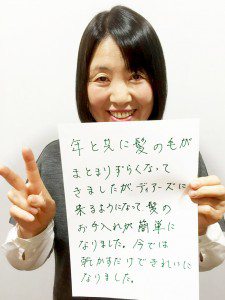 年と共に髪の毛が
まとまりずらくなって
きましたがディアーズに
来るようになって髪の
お手入れが簡単に
なりました。今では
乾かすだけできれいに
なりました。